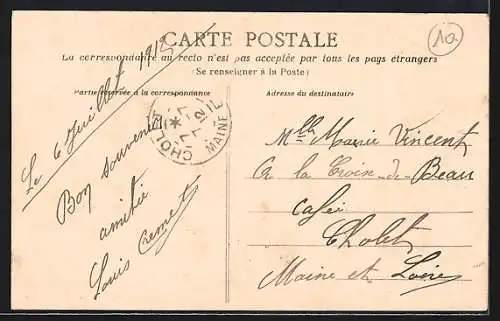 CARTE POSTALE
La correspondance au recto n'est pas acceptée par tous les pays étrangers
(Se renseigner à la Poste)
Partie réservée à la correspondance
Adresse du destinataire
Le 6 Juillet 1912
Bon souvenir
amitié
Louis Cremet
CHOLET
MAINE
Mlle Marie Vincent
A la Croix-de-Beau
Cholet
Maine et Loire
10